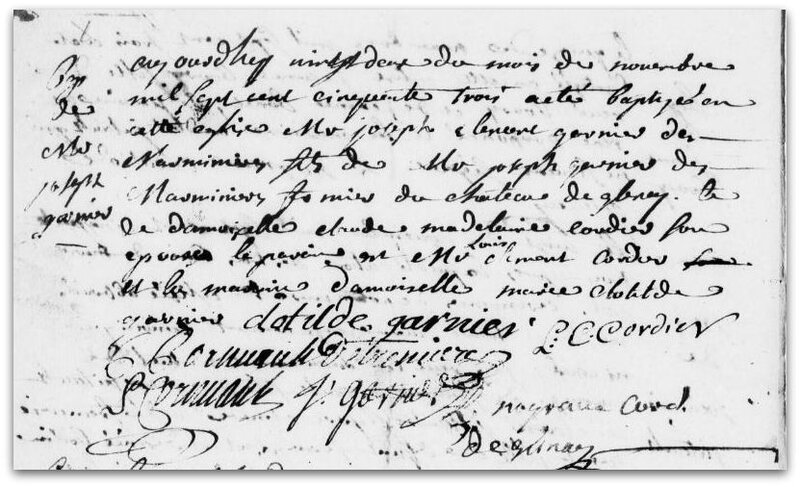 Bp
de
Mr
joseph
garnier
aujourdhuy vingt deux du mois de novembre
mil sept cent cinquente trois a eté baptizé en
cette eglise Mr joseph Clement garnier des
Marminiers fils de Mr joseph garnier des
Marminiers fermier du chateau de glenay. et
de damoiselle madelaine cordier son
epouse le parein est Mr Louis Clement Cordier
et la mareine damoiselle marie Clotilde
garnier Clotilde garnier L C Cordier
Cornuault
Cornuault J garnier
curé
de glenay